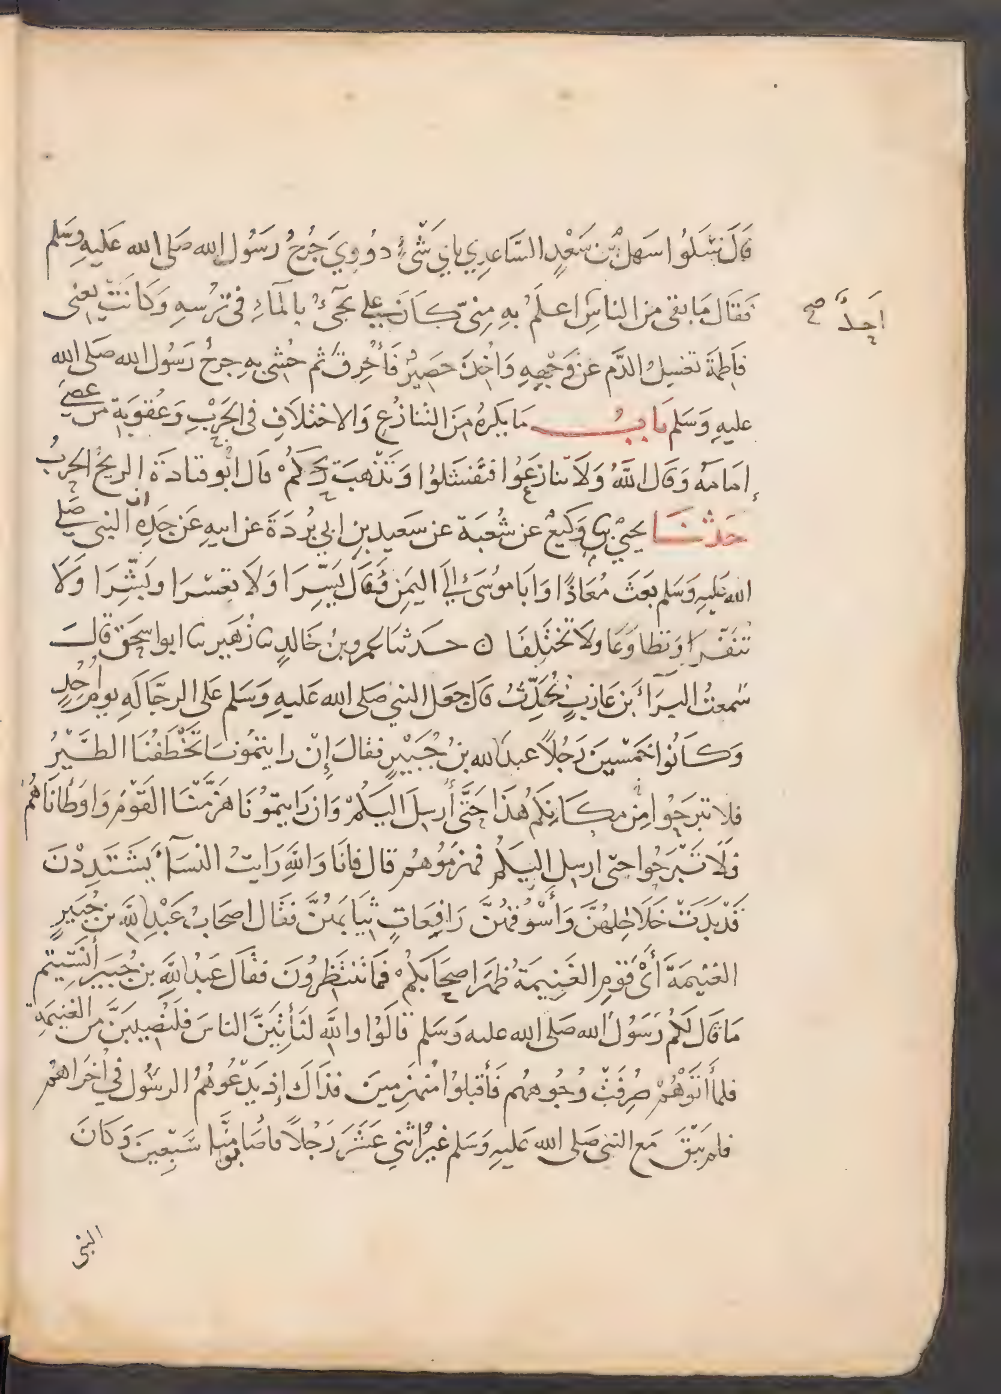 قَالَ سَٔلُوا سَهْلَ بْنَ سَعْدٍ السَّاعِدِيِ بِايّ شَيْءٍ دُووِيَ جُرْحُ رَسُولِ الله صَلى الله عَليهِ وسَلم
فقَال مَا بقى مِن الناسِ اعلَمُ بهِ مِنيّ كَانَ علي يجَىُٔ بالمآءِ فى تُرسِهِ وَكانتْ يعنى
احدٌ صح
فَاطِمَة تغسِلُ الدَّم عن وَجْهِهِ وَاخِذَ حَصِيرٌ فَأحْرِقَ ثم حُشى بهِ جرحُ رَسُول الله صَلى الله
عليهِ وَسَلم بابُ مَا يكرهُ مِنَ التنازُعِ وَالاختلَافِ فى الحَرْبِ وَعُقوبَةِ من عصىَ
إمَامَهُ وَقَال اللَّهُ وَلَا تنازعَوُا فتَفشَلوُا وَتذْهبَ رِيحُكمْ قال ابُو قتادَةَ الريحُ الحربُ
حَدثنا يحيْى سا وَكيعٌ عن شُعبَة عن سَعيدِ بنِ ابي بُردَةَ عن ابيهِ عَن جَدهِ ان النبى صَلى
الله عَليهِ وَسَلم بَعَثَ مُعَاذًا وَابَا مُوسَى إلَى اليَمَنِ فَقَال يَسِّرَا وَلَا تعسّرَا وبَشِّرَا وَلَا
تنَفّرا وَتطاوَعَا ولا تخْتَلِفَا ن حدثنا عمرو بنُ خَالدٍ سا زُهَير سا ابوا سحَق قالَ
سَمعتُ البَرَآءَ بن عَازبٍ يُحَدِّثُ قال جعَل النبي صَلى الله عَليهِ وَسَلم عَلى الرجَّالَهِ يومَ أُحُدٍ
وَكانُوا خَمْسِينَ رَجُلًا عبدَ الله بنُ جُبَيْرٍ فقالَ إنْ رايتمُونَا تَخْطَفُنَا الطَّيْرُ
فلا تبرَحُوا مِن مكَانِكُم هُذَا حَتَّى أرسِلَ اليكُمْ وَان رَايتمّوُنَا هَزَمْنَا القَوْمَ وَاوطأنَاهُمُ
فلَا تَبْرَحُوا حتى ارسِل اليكُم فهزمُوهُم قال فانَا وَاللَّهِ رَايتُ النسَآءَ يَشْتَدِدْنَ
قَدْ بَدَتْ خَلَاخِلهُنَّ وَأسْوُقهُنَّ رَافِعَاتٍ ثيَابَهنَّ فقَال اصحَابُ عَبْدِ اللَّهِ بن جُبَيرٍ
الغنِيمَةَ أيْ قَومِ الغَنِيمَةَ ظَهَرَ اصحَابكمْ فمَا تنتظِرُونَ فقَال عَبْدُ اللَّهِ بن جُبَير أنَسِيتم
مَا قَال لكُم رَسُولُ الله صَلى الله عليه وَسَلم قالَوُا واللَّهِ لنَأتِيَنَّ الناسَ فلَنُصِيبَنَّ مِن الغنيمَةِ
فلمأ أتَوْهُمْ صُرِفَتْ وُجوُههُم فَأقبلوا مُنهَزِمِينَ فذَاكَ إذ يَدْعُوهُمُ الرسُول في أخرَاهُم
فلم يَبْقَ مَع النبى صَلى الله عَليهِ وَسَلم غيرُ اثنى عَشَرَ رَجُلًا فاصَابوا مِنَّا سَبْعِينَ وَكَانَ
النبى